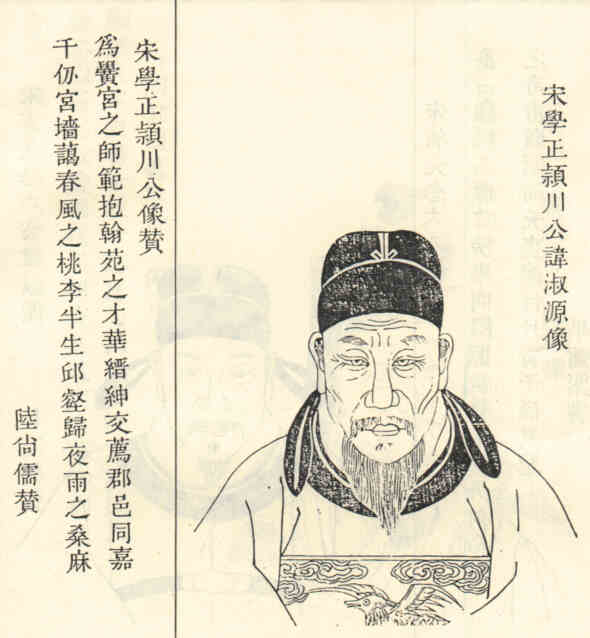 宋學正潁川公諱淑源像
宋學正潁川公像贊
為黌宮之師範抱翰苑之才華縉紳交薦郡邑同嘉
千仞宮墻藹春風之桃李半生邱壑歸夜雨之桑麻
陸尙儒贊